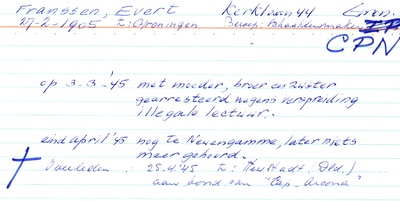 Franssen, Evert Kerklaan 44 Gron.
27-2-1905 te: Groningen Beroep: Behangersmaker
CPN
op 3-3-'45 met moeder, broer en zuster
gearresteerd wegens verspreiding
illegale lectuur.
eind april '45 nog te Neuengamme, later niets
meer gehoord.
Overleden: 25-4-'45 te: Neustadt, Dld. /
aan boord van "Cap-Arcona"